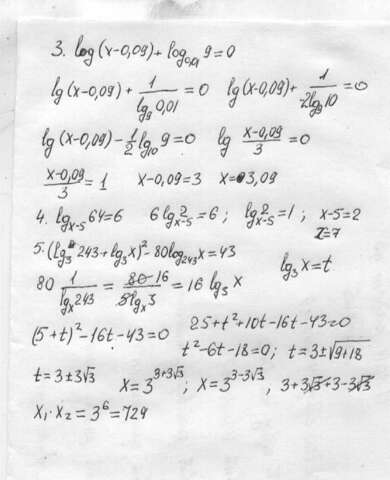 3. log(x-0,09)+log₀,₀₁ 9=0
lg(x-0,09)+ 1/lg₉ 0,01 =0 lg(x-0,09)+ 1/2lg₉10 =0
lg(x-0,09)-1/2 lg₁₀ 9=0 lg (x-0,09)/3 =0
(x-0,09)/3 = 1 x-0,09=3 x=3,09
4. lgₓ₋₅ 64=6 6lgₓ₋₅ 2=6; lgₓ₋₅ 2=1; x-5=2
x=7
5. (lg₃ 243+lg₃x)²-80log₂₄₃x=43 lg₃x=t
80 1/lgₓ243 = 80·16/5lgₓ3 =16 lg₃ x
(5+t)²-16t-43=0 25+t²+10t-16t-43=0
t²-6t-18=0; t=3±√9+18
t=3±3√3 x=3³⁺³√³; x=3³⁻³√³, 3+3√3+3-3√3
x₁·x₂=3⁶=729